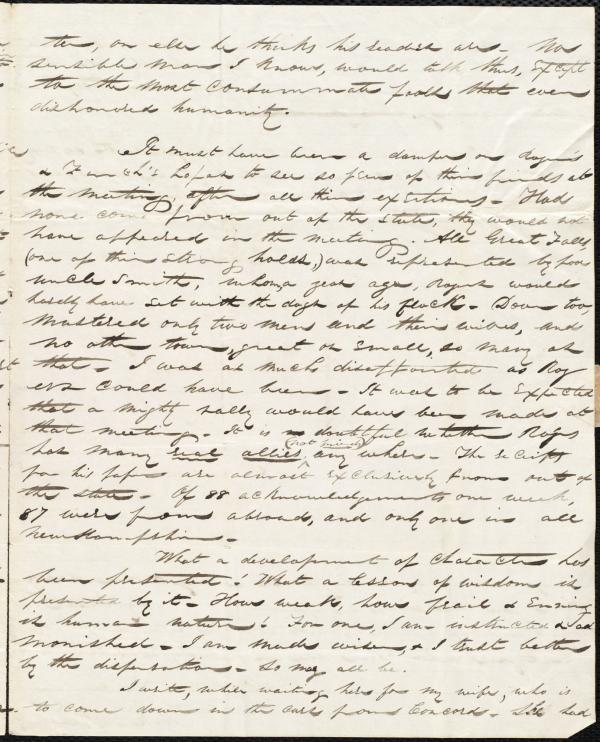 ter, or else he thinks his readers are - No
sensible man I know, would talk thus, except
to the most consummate fools that ever
dishonored humanity.
It must have been a damper on Rogers's
& French's hopes to see so few of their friends at
the meeting, after all their exertions - Had
none come from out of the state, they would not
have appeared in the meeting. All Great Falls
(one of their strong holds,) was represented by poor
uncle Smith, whom a year ago, Rogers would
hardly have set with the dogs of his flock - Dover too
mustered only two men and their wives, and
no other town, great or small, so many as
that - I was as much disappointed as Rog
ers could have been - It was to be expected
that a mighty rally would have been made at
that meeting - It is doubtful whether Rogers
has many real allies, (not friends) any where - The receipts
for his paper are almost exclusively from out of
the state - Of 88 acknowledgements one week,
87 were from abroad, and only one in all
New Hampshire -
What a development of character has
been presented! What a lesson of wisdom is
presented by it - How weak, how frail & erring
is human nature! For one, I am instructed & ad
monished - I am made wiser, & I trust better
by the disputation - So may all be.
I write, while waiting here for my wife, who is
to come down in the cars from Concord - She had